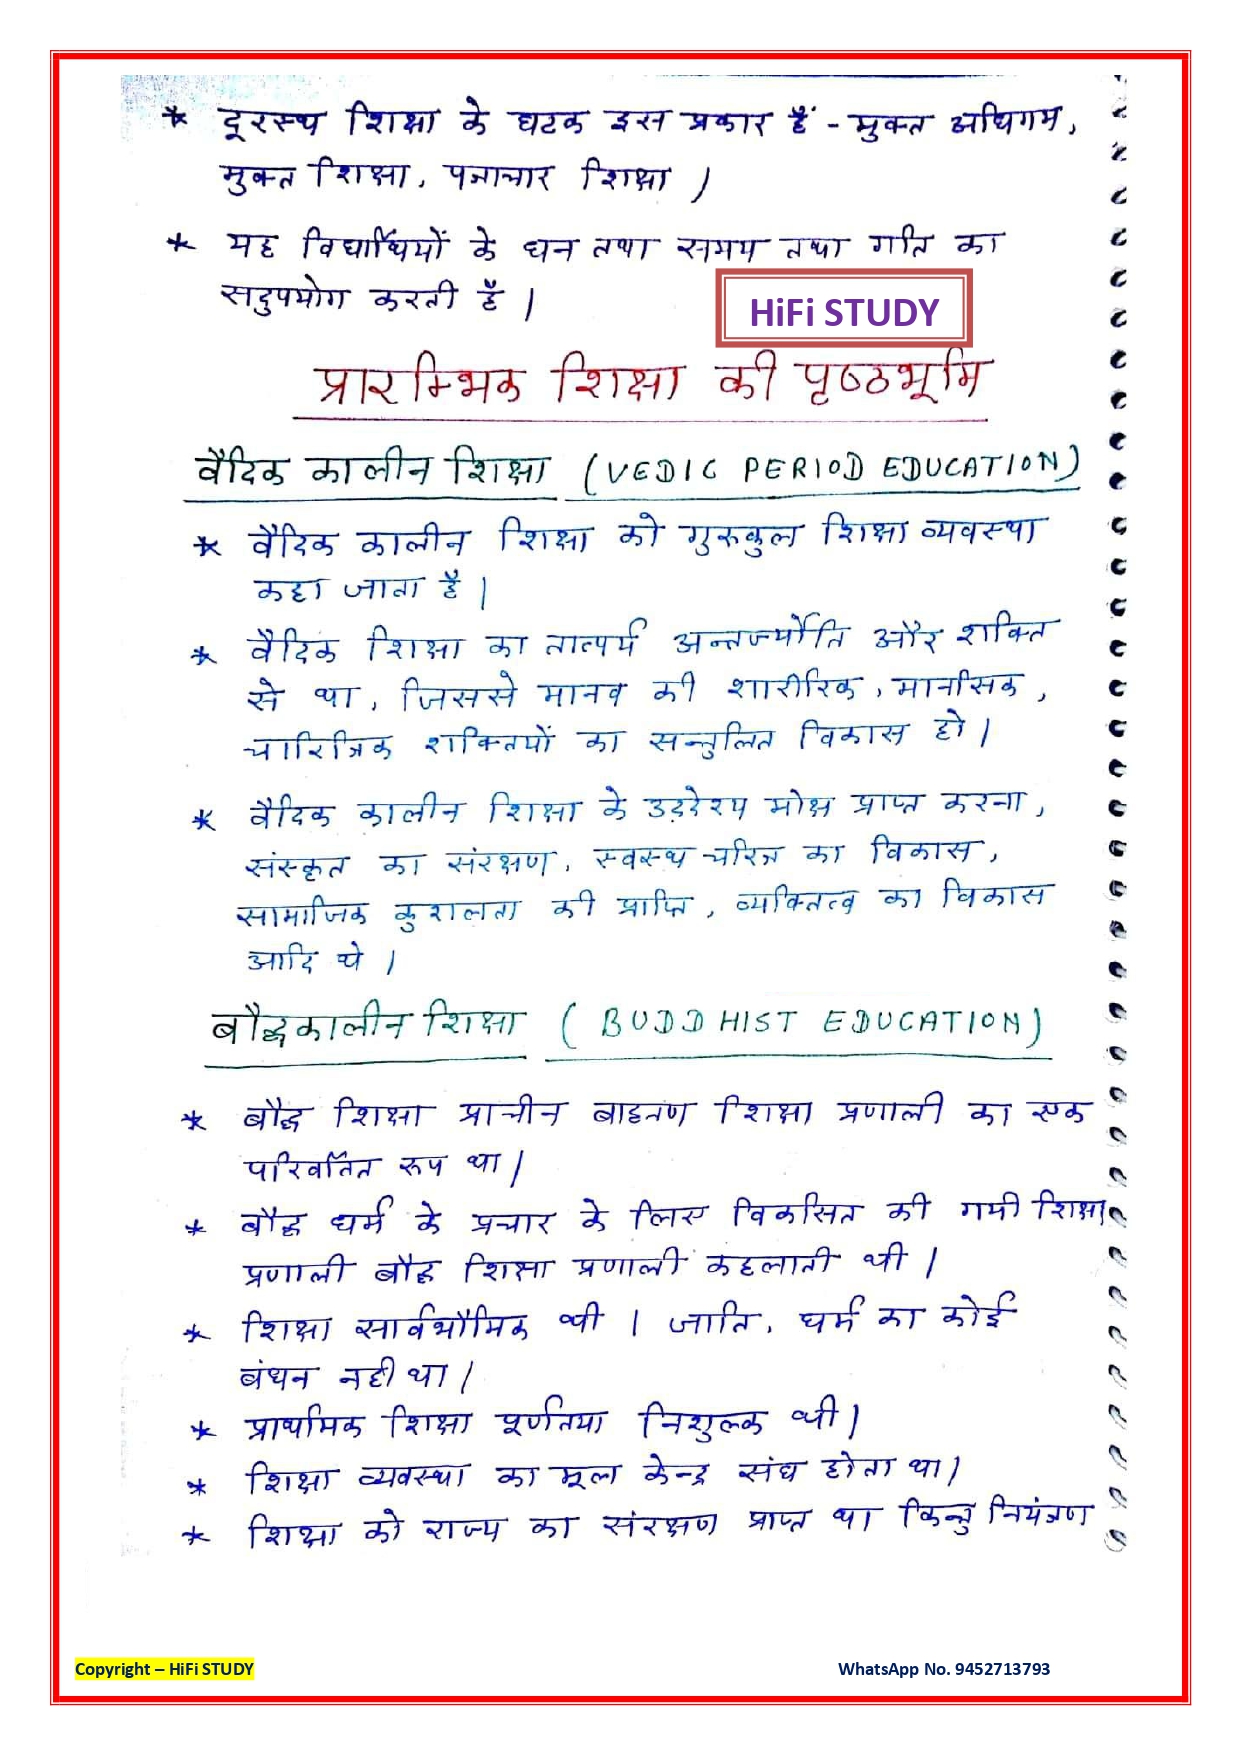 * दूरस्थ शिक्षा के घटक इस प्रकार हैं - मुक्त अधिगम,
मुक्त शिक्षा, पत्राचार शिक्षा।
* यह विद्यार्थियों के धन तथा समय तथा गति का
सदुपयोग करती है।
HiFi STUDY
प्रारम्भिक शिक्षा की पृष्ठभूमि
वैदिक कालीन शिक्षा (VEDIC PERIOD EDUCATION)
* वैदिक कालीन शिक्षा को गुरुकुल शिक्षा व्यवस्था
कहा जाता है।
* वैदिक शिक्षा का तात्पर्य अन्तर्ज्योति और शक्ति
से था, जिससे मानव की शारीरिक, मानसिक,
चारित्रिक शक्तियों का सन्तुलित विकास हो।
* वैदिक कालीन शिक्षा के उद्देश्य मोक्ष प्राप्त करना,
संस्कृत का संरक्षण, स्वस्थ चरित्र का विकास,
सामाजिक कुशलता की प्राप्ति, व्यक्तित्व का विकास
आदि थे।
बौद्धकालीन शिक्षा (BUDDHIST EDUCATION)
* बौद्ध शिक्षा प्राचीन बाह्मण शिक्षा प्रणाली का एक
परिवर्तित रूप था।
* बौद्ध धर्म के प्रचार के लिए विकसित की गयी शिक्षा
प्रणाली बौद्ध शिक्षा प्रणाली कहलाती थी।
* शिक्षा सार्वभौमिक थी। जाति, धर्म का कोई
बंधन नही था।
* प्राथमिक शिक्षा पूर्णतया निशुल्क थी।
* शिक्षा व्यवस्था का मूल केन्द्र संघ होता था।
* शिक्षा को राज्य का संरक्षण प्राप्त था किन्तु नियंत्रण
Copyright – HiFi STUDY
WhatsApp No. 9452713793